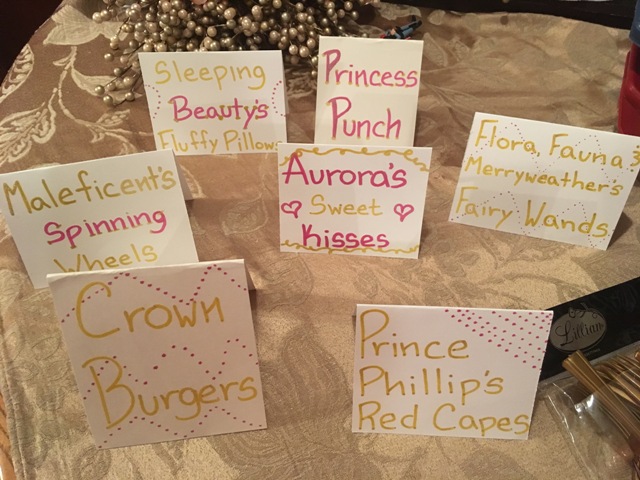 Sleeping
Beauty's
Fluffy Pillow
Princess
Punch
Flora, Fauna &
Merryweather's
Fairy Wands
Maleficent's
Spinning
Wheels
Aurora's
Sweet
Kisses
Crown
Burgers
Prince
Phillip's
Red Capes
Lillian